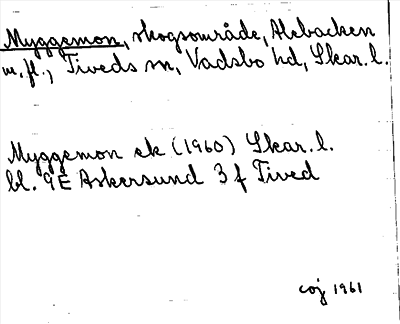 Myggemon, skogsområde, Alebacken
m.fl., Tiveds sn, Vadsbo hd, Skar.l.
Myggemon ek (1960) Skar.l.
bl. 9E Askersund 3 f Tived
coj 1961